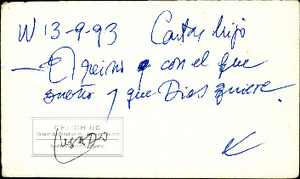 W 13-9-93 Cartas hijo
— El reino con el que
sueño y que Dios quiere.